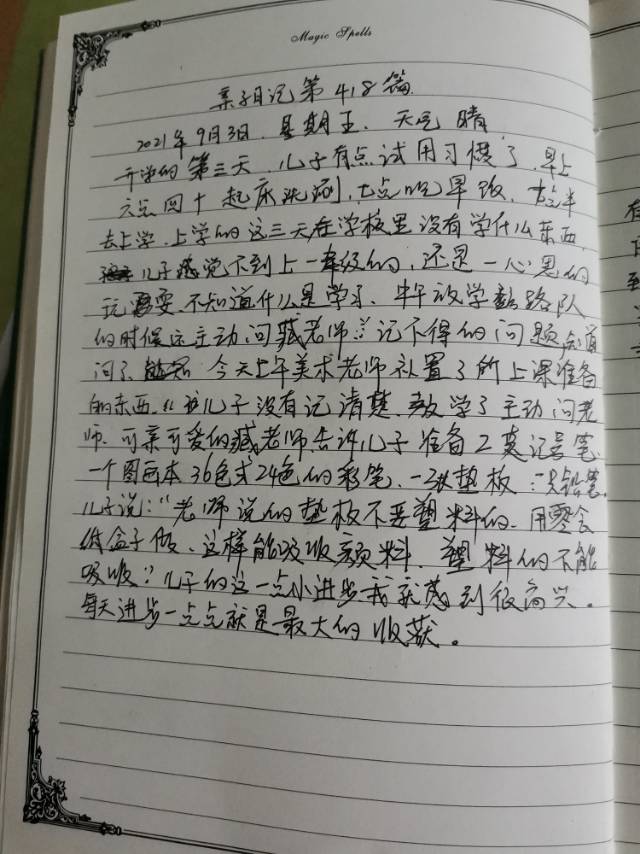 Magic Spells
亲子日记第418篇
2021年9月3日. 星期五. 天气 晴
开学的第三天, 儿子有点试用习惯了, 早上
六点四十起床洗涮, 七点吃早饭, 七点半
去上学. 上学的这三天在学校里没有学什么东西,
儿子感觉不到上一年级的, 还是一心思的
玩耍, 不知道什么是学习, 中午放学路队
的时候还主动问臧老师记不得的问题
问了, 今天上午美术老师布置了所上课准备
的东西, 儿子没有记清楚, 放学了主动问老
师. 可亲可爱的臧老师告诉儿子准备2莫记号笔
一个图画本 36色或24色的彩笔, 一张垫板, 一支铅笔,
儿子说:"老师说的垫板不要塑料的. 用零食
纸盒子做, 这样能吸收颜料, 塑料的不能
吸收", 儿子的这一点小进步我就感到很高兴。
每天进步一点点就是最大的收获。